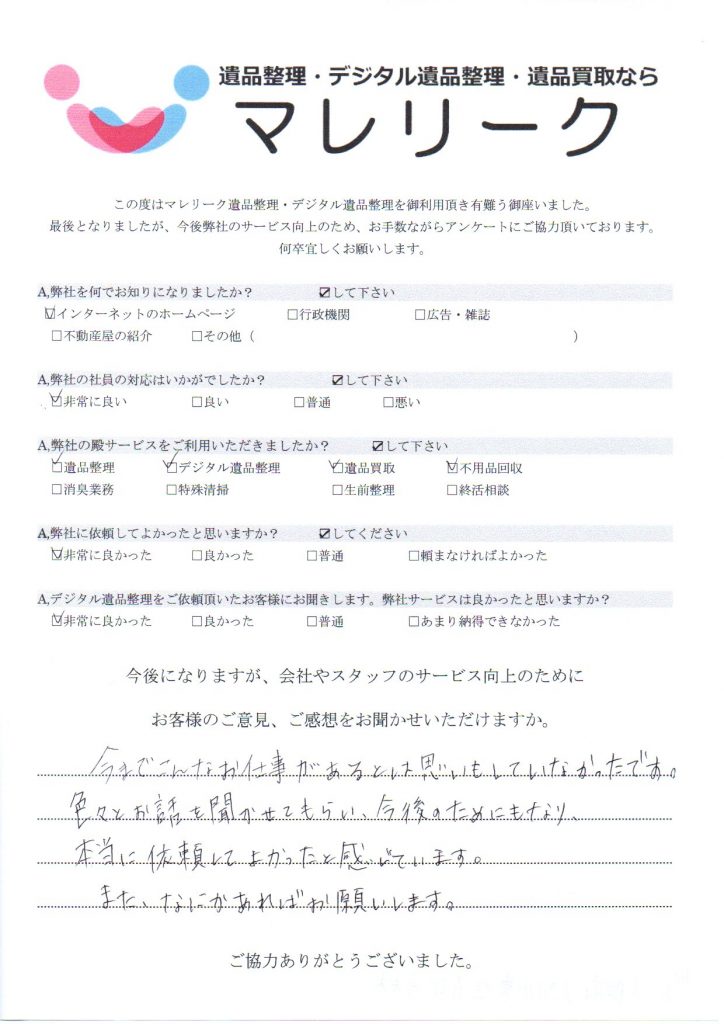 遺品整理・デジタル遺品整理・遺品買取なら
マレリーク
この度はマレリーク遺品整理・デジタル遺品整理を御利用頂き有難う御座いました。
最後となりましたが、今後弊社のサービス向上のため、お手数ながらアンケートにご協力頂いております。
何卒宜しくお願いします。
A,弊社を何でお知りになりましたか？ ☑して下さい
☑インターネットのホームページ □行政機関 □広告・雑誌
□不動産屋の紹介 □その他（ ）
A,弊社の社員の対応はいかがでしたか？ ☑して下さい
☑非常に良い □良い □普通 □悪い
A,弊社の殿サービスをご利用いただきましたか？ ☑して下さい
☑遺品整理 ☑デジタル遺品整理 ☑遺品買取 ☑不用品回収
□消臭業務 □特殊清掃 □生前整理 □終活相談
A,弊社に依頼してよかったと思いますか？ ☑してください
☑非常に良かった □良かった □普通 □頼まなければよかった
A,デジタル遺品整理をご依頼頂いたお客様にお聞きします。弊社サービスは良かったと思いますか？
☑非常に良かった □良かった □普通 □あまり納得できなかった
今後になりますが、会社やスタッフのサービス向上のために
お客様のご意見、ご感想をお聞かせいただけますか。
今までこんなお仕事があるとは思いもしていなかったです。
色々とお話を聞かせてもらい、今後のためにもなり、
本当に依頼してよかったと感じています。
また、なにかあればお願いします。
ご協力ありがとうございました。